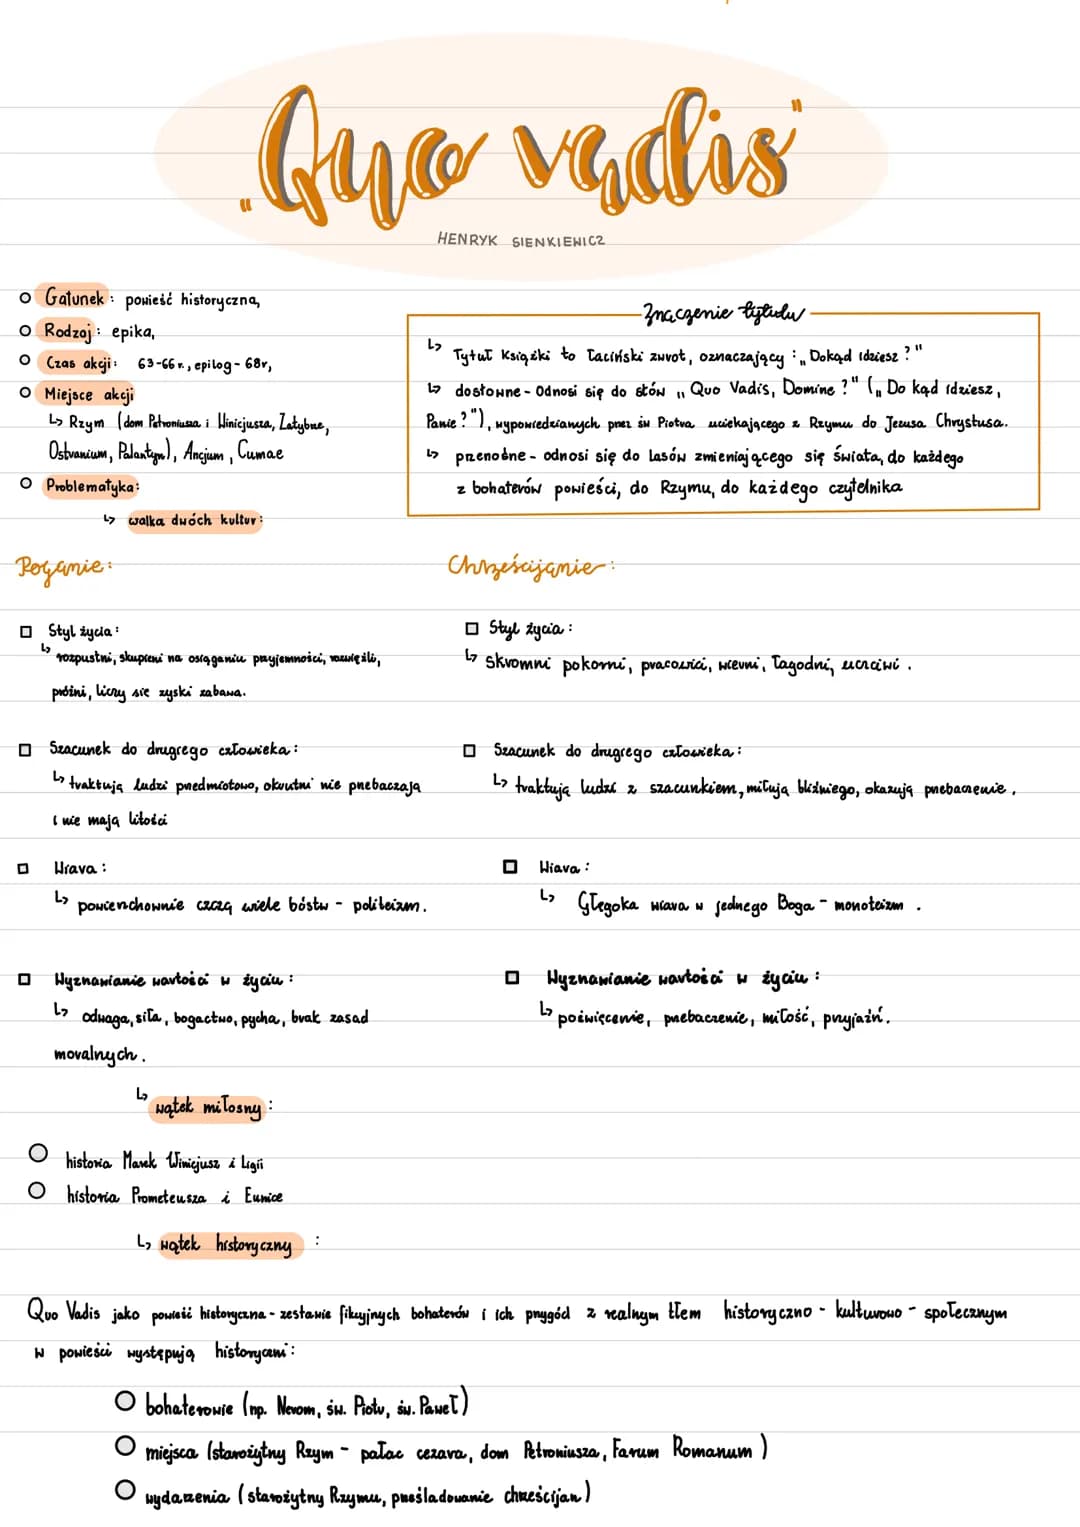 „Quo vadis"
HENRYK SIENKIEWICZ
Gatunek: powieść historyczna,
Rodzaj: epika,
Czas akcji: 63-66r., epilog - 68r,
Miejsce akcji
↳ Rzym (dom Petroniusza i Winicjusza, Zatybrze,
Ostranium, Palantyn), Ancjum, Cumae
Problematyka:
↳ walka dwóch kultur:
Znaczenie tytułu
↳ Tytuł Książki to łaciński zwrot, oznaczający: „Dokąd idziesz?"
↳ dosłowne - Odnosi się do słów „Quo Vadis, Domine?" („Do kąd idziesz,
Panie?"), wypowiedzianych przez św Piotra uciekającego z Rzymu do Jezusa Chrystusa.
↳ przenośne - odnosi się do lasów zmieniającego się świata, do każdego
z bohaterów powieści, do Rzymu, do każdego czytelnika
Poganie:
Styl życia:
↳ rozpustni, skupieni na osiąganiu przyjemności, rozwięźli,
próżni, liczy sie zyski zabawa.
Szacunek do drugiego człowieka:
↳ traktują ludzi przedmiotowo, okrutni nie przebaczają
i nie mają litości
Wiara:
↳ powierzchownie czczą wiele bóstw - politeizm.
Wyznawianie wartości w życiu:
↳ odwaga, siła, bogactwo, pycha, brak zasad
moralnych.
Chrześcijanie:
Styl życia:
↳ Skromni pokorni, pracowici, wierni, łagodni, uczciwi.
Szacunek do drugiego człowieka:
↳ traktują ludzi z szacunkiem, miłują bliźniego, okazują przebaczenie.
Wiara:
↳ Głęgoka wiara w jednego Boga - monoteizm.
Wyznawianie wartości w życiu:
↳ poświęcenie, przebaczenie, miłość, przyjaźń.
↳ wątek miłosny:
historia Marek Winicjusz i Ligii
historia Prometeusza i Eunice
↳ wątek historyczny:
Quo Vadis jako powieść historyczna - zestawie fikcyjnych bohaterów i ich przygód z realnym tłem historyczno - kulturowo - społecznym
W powieści występują historyczni:
bohaterowie (np. Neron, św. Piotr, św. Paweł)
miejsca (starożytny Rzym - pałac cezara, dom Petroniusza, Farum Romanum)
wydarzenia (starożytny Rzymu, prześladowanie chrześcijan)